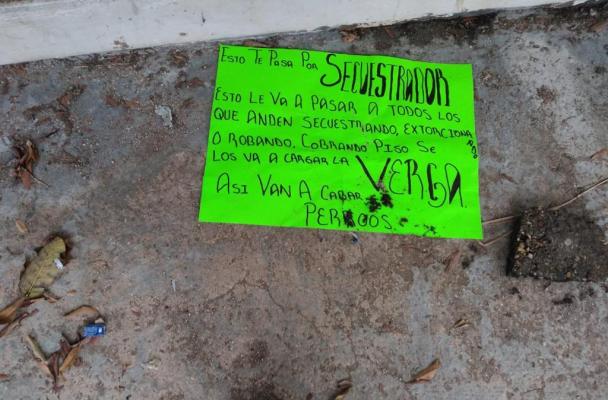 ESTO TE PASA POR SECUESTRADOR
ESTO LE VA A PASAR A TODOS LOS
QUE ANDEN SECUESTRANDO, EXTORCIONA
O ROBANDO, COBRANDO PISO SE
LOS VA A CARGAR LA VERGA
ASI VAN A CABAR
PERROS.